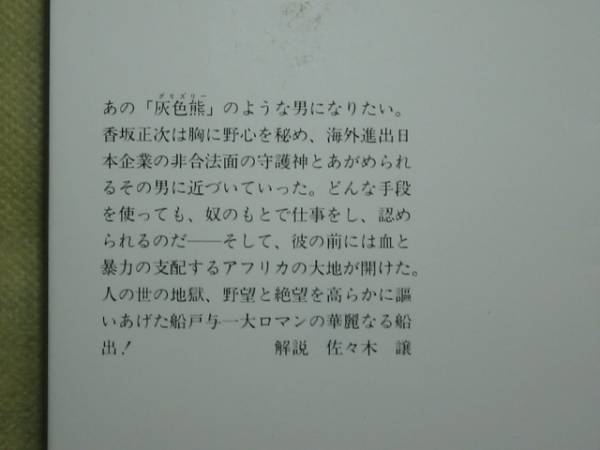 グリズリー
あの「灰色熊」のような男になりたい。
香坂正次は胸に野心を秘め、海外進出日
本企業の非合法面の守護神とあがめられ
るその男に近づいていった。どんな手段
を使っても、奴のもとで仕事をし、認め
られるのだ――そして、彼の前には血と
暴力の支配するアフリカの大地が開けた。
人の世の地獄、野望と絶望を高らかに謳
いあげた船戸与一大ロマンの華麗なる船
出! 解説 佐々木 譲